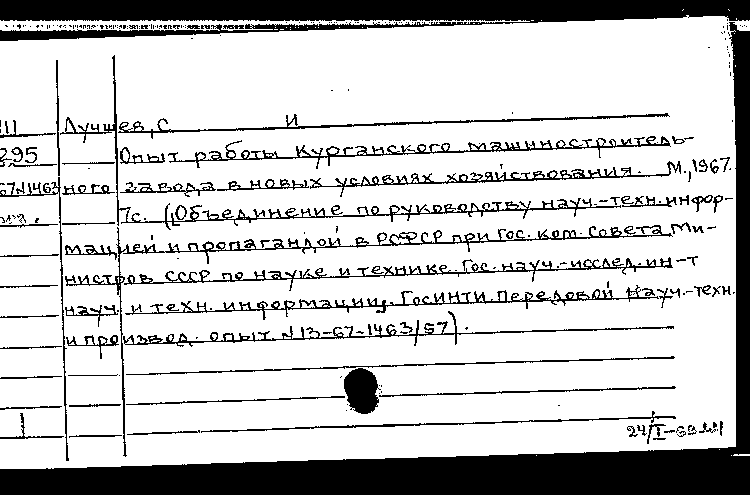 III Лучшев, С И
295 Опыт работы Курганского машиностроитель-
67N1463 ного завода в новых условиях хозяйствования. М., 1967.
7с. (Объединение по руководству науч.-техн. инфор-
мацией и пропагандой в РСФСР при Гос. ком. Совета Ми-
нистров СССР по науке и технике. Гос. науч.-исслед. ин-т
науч. и техн. информации. ГОСИНТИ. Передовой науч.-техн.
и производ. опыт. N13-67-1463/57).
1
24/I-68